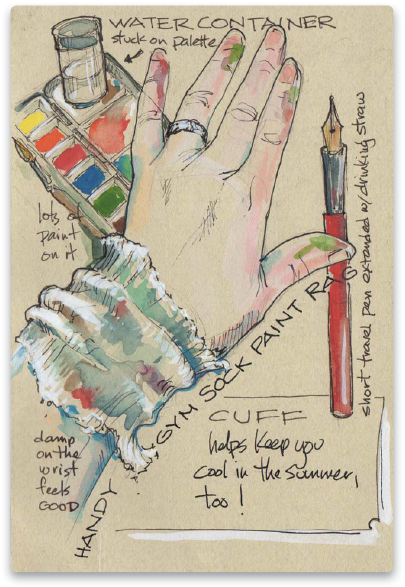 WATER CONTAINER
stuck on palette
lots of
paint
on it
short travel pen extended w/drinking straw
HANDY GYM SOCK PAINT RAG
CUFF
helps keep you
cool in the summer,
too!
damp
on the
wrist
feels
GOOD